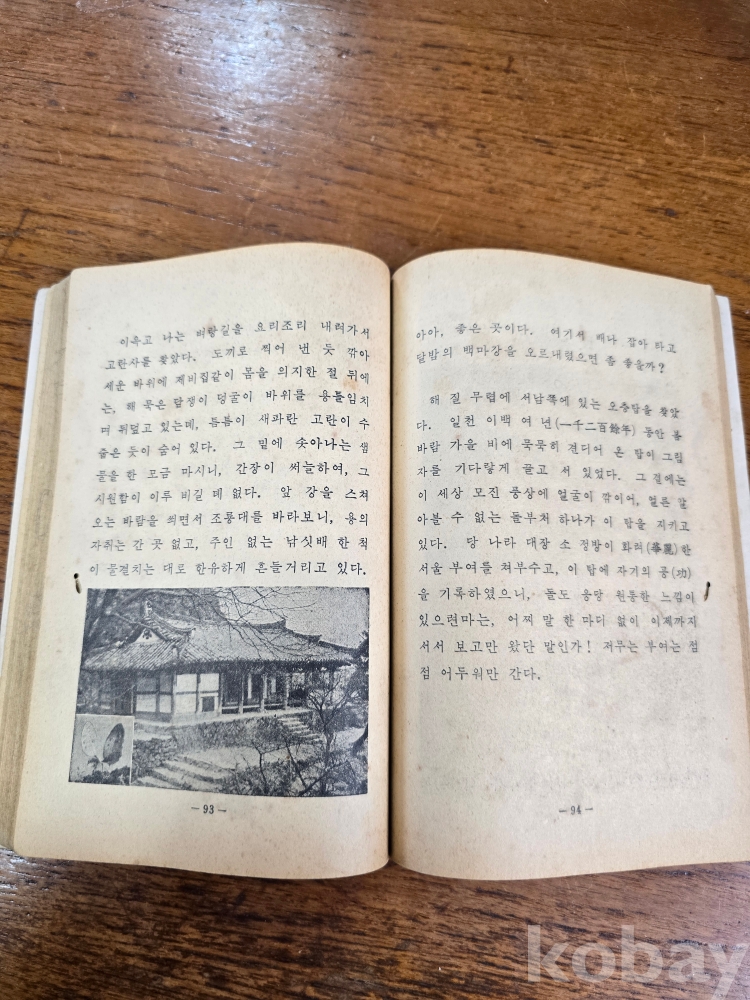 이윽고 나는 벼랑길을 요리조리 내려가서
고란사를 찾았다. 도끼로 찍어 낸 듯 깎아
세운 바위에 제비집같이 몸을 의지한 절 뒤에
는, 해 묵은 담쟁이 덩굴이 바위를 용틀임치
며 뒤덮고 있는데, 틈틈이 새파란 고란이 수
줍은 듯이 숨어 있다. 그 밑에 솟아나는 샘
물을 한 모금 마시니, 간장이 써늘하여, 그
시원함이 이루 비길 데 없다. 앞 강을 스쳐
오는 바람을 쐬면서 조룡대를 바라보니, 용의
자취는 간 곳 없고, 주인 없는 낚싯배 한 척
이 물결치는 대로 한유하게 흔들거리고 있다.
— 93 —
아아, 좋은 곳이다. 여기서 배나 잡아 타고
달밤의 백마강을 오르내렸으면 좀 좋을까?
해 질 무렵에 서남쪽에 있는 오층탑을 찾았
다. 일천 이백 여 년(一千二百餘年) 동안 봄
바람 가을 비에 묵묵히 견디어 온 탑이 그림
자를 기다랗게 끌고 서 있었다. 그 곁에는
이 세상 모진 풍상에 얼굴이 깎이어, 얼른 알
아볼 수 없는 돌부처 하나가 이 탑을 지키고
있다. 당 나라 대장 소 정방이 화려(華麗)한
서울 부여를 쳐부수고, 이 탑에 자기의 공(功)
을 기록하였으니, 돌도 응당 원통한 느낌이
있으련마는, 어찌 말 한 마디 없이 이제까지
서서 보고만 왔단 말인가! 저무는 부여는 점
점 어두워만 간다.
— 94 —
kobay